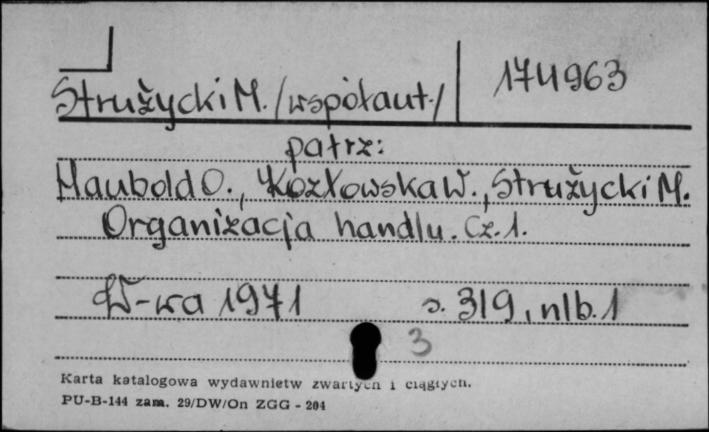 Strużycki M. /współaut./ 174963
patrz:
Haubold O., Kozłowska W., Strużycki M.
Organizacja handlu. Cz. 1.
W-wa 1971 s. 319, nlb. 1
3
Karta katalogowa wydawnictw zwartych i ciągłych.
PU-B-144 zam. 29/DW/On ZGG - 204